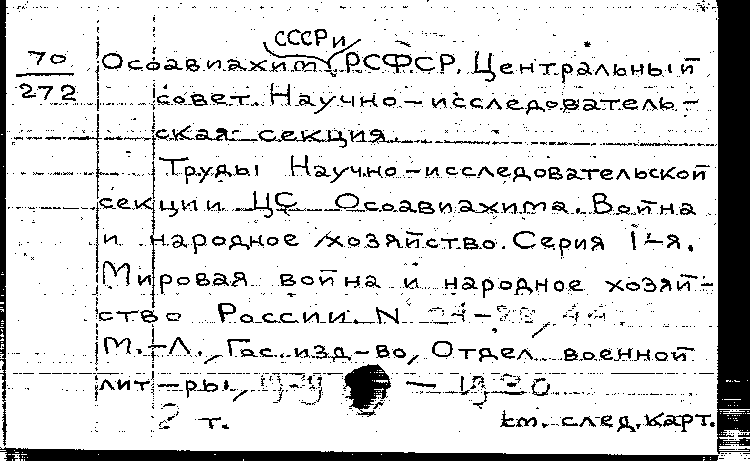 СССР и
70
272
Осоавиахим РСФСР. Центральный
совет. Научно-исследователь-
ская секция.
Труды Научно-исследовательской
секции ЦС Осоавиахима. Война
и народное хозяйство. Серия I-я.
Мировая война и народное хозяй-
ство России. N
М.-Л., Гос. изд-во, Отдел военной
лит-ры,
2 т.
см. след. карт.